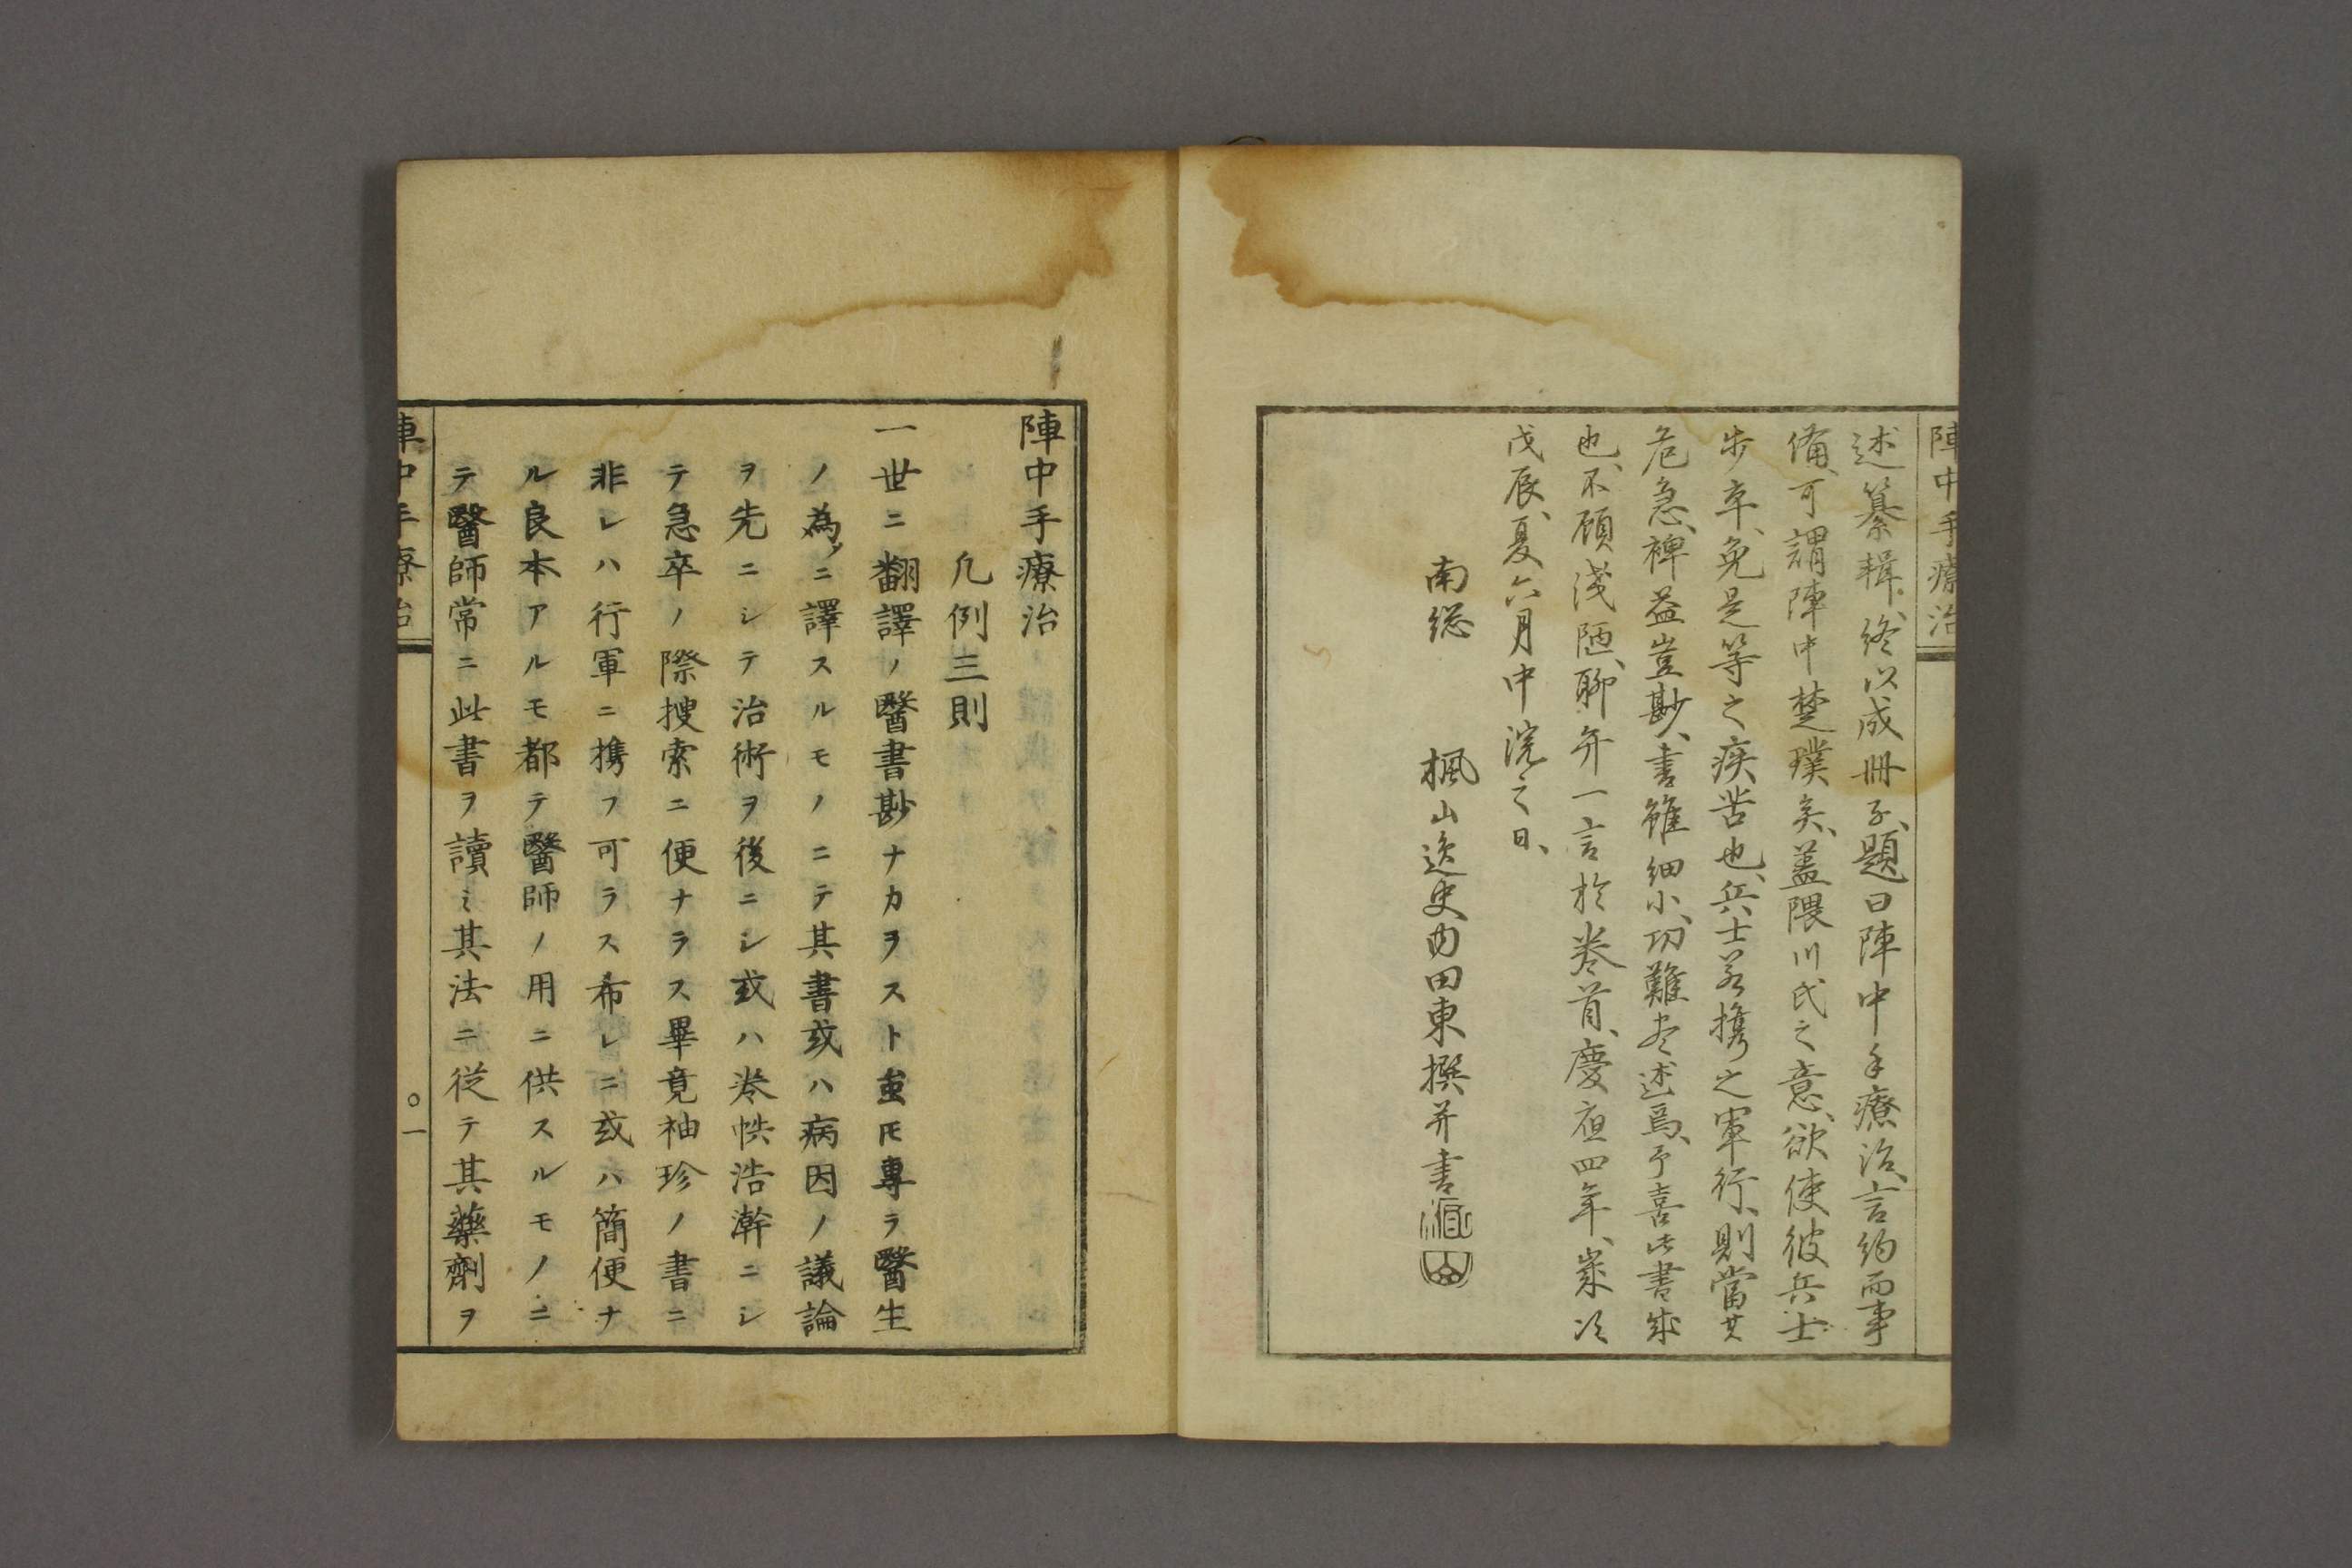 陣中手療治
述纂輯、終以成冊子、題曰陣中手療治、言約而事
備、可謂陣中楚璞矣、蓋隈川氏之意、欲使彼兵士
步卒、免是等之疾苦也、兵士若携之軍行、則當其
危急、裨益豈尠、書雖細小、功難尽述焉、予喜此書成
也、不顧淺陋、聊弁一言於巻首、慶應四年、歲次
戊辰、夏六月中浣之日、
南総 楓山逸史内田東撰并書
陣中手療治
凡例三則
一世ニ翻譯ノ醫書尠ナカラスト虽𪜈專ラ醫生
ノ為メニ譯スルモノニテ其書或ハ病因ノ議論
ヲ先ニシテ治術ヲ後ニシ或ハ巻帙浩澣ニシ
テ急卒ノ際搜索ニ便ナラス畢竟袖珍ノ書ニ
非レハ行軍ニ携フ可ラス希レニ或ハ簡便ナ
ル良本アルモ都テ醫師ノ用ニ供スルモノニ
テ醫師常ニ此書ヲ讀ミ其法ニ従テ其藥劑ヲ
陣中手療治
〇一